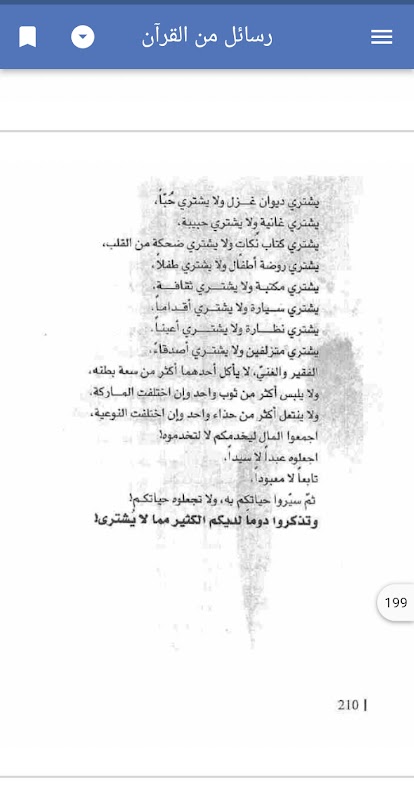 رسائل من القرآن
يشتري ديوان غـــزل ولا يشتري حُبّاً،
يشتري غانية ولا يشتري حبيبة.
يشتري كتاب نكات ولا يشتري ضحكة من القلب،
يشتري روضة أطفال ولا يشتري طفلاً،
يشتري مكتبة ولا يشتـــري ثقافـــة.
يشتري سـيـارة ولا يشتري أقـدامـاً.
يشتري نظـــارة ولا يشتـــري أعيناً.
يشتري متزلفين ولا يشتري أصدقاء.
الفقير والغنيّ، لا يأكل أحدهما أكثر من سعة بطنه،
ولا يلبس أكثر من ثوب واحد وإن اختلفت المـاركة.
ولا ينتعل أكثر من حذاء واحد وإن اختلفت النوعية،
اجمعوا المال ليخدمكم لا لتخدموه!
اجعلوه عبداً لا سيداً،
تابعاً لا معبوداً،
ثمّ سيّروا حياتكم به، ولا تجعلوه حياتكم!
وتذكروا دوماً لديكم الكثير مما لا يُشترى!
199
210 |